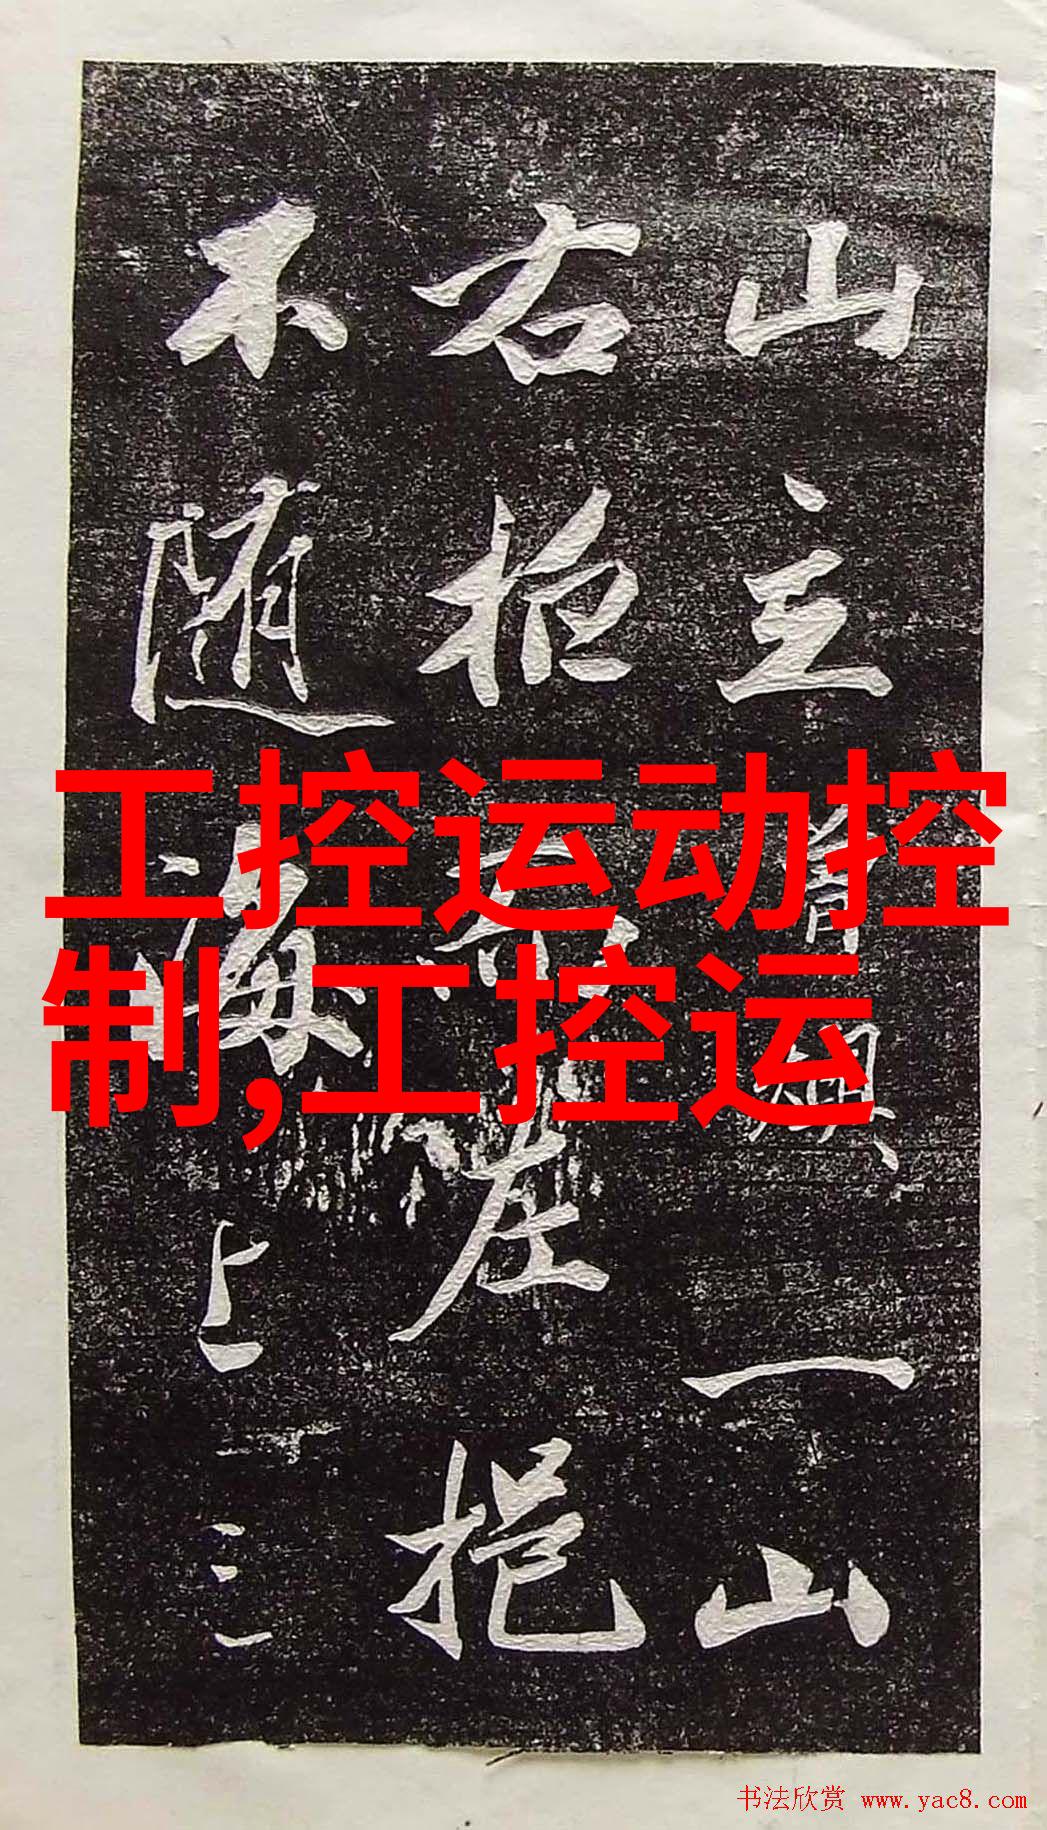 山主一山
右左挹
不随海上三
工控运动控
制,工控运
书法欣赏 www.yac8.com